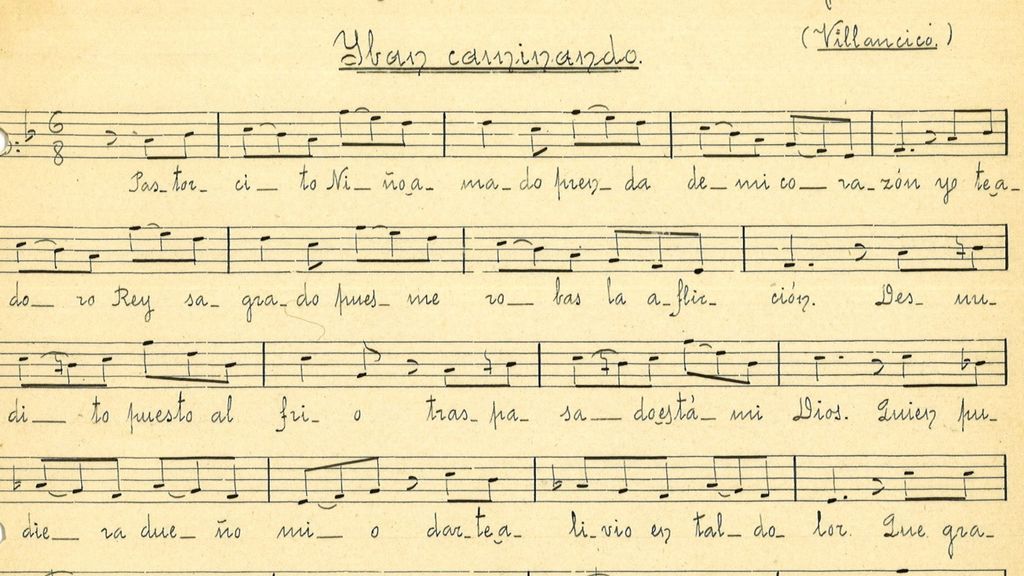 (Villancico.)
Yban caminando.
6
8
Pas-tor-ci-to Ni-ño a-ma-do pren-da de-mi co-ra-zón yo te a-
do-ro Rey sa-gra-do pues-me ro-bas la a-flic-ción. Des-nu-
di-to puesto al fri-o tras-pa-sa-do está-mi Dios. Quien pu-
die-ra due-ño mi-o dar-te a-li-vio en tal-do-lor. Que gra-